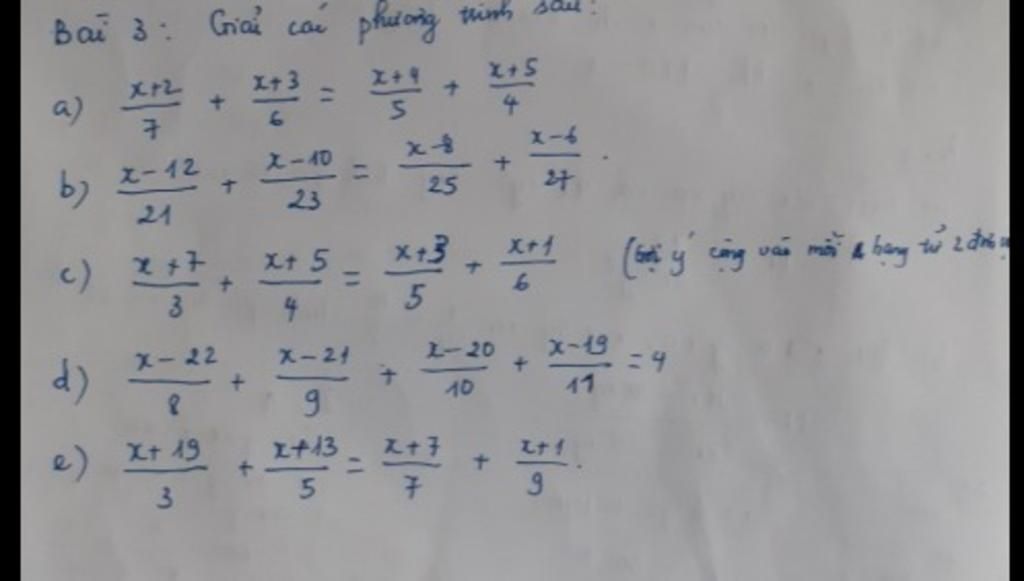 Bài 3: Giải các phương trình sau:
a) (x+2)/7 + (x+3)/6 = (x+4)/5 + (x+5)/4
b) (x-12)/21 + (x-10)/23 = (x-8)/25 + (x-6)/27.
c) (x+7)/3 + (x+5)/4 = (x+3)/5 + (x+1)/6 (Gợi ý cộng vào mỗi hạng tử 2
d) (x-22)/8 + (x-21)/9 + (x-20)/10 + (x-19)/11 = 4
e) (x+19)/3 + (x+13)/5 = (x+7)/7 + (x+1)/9.